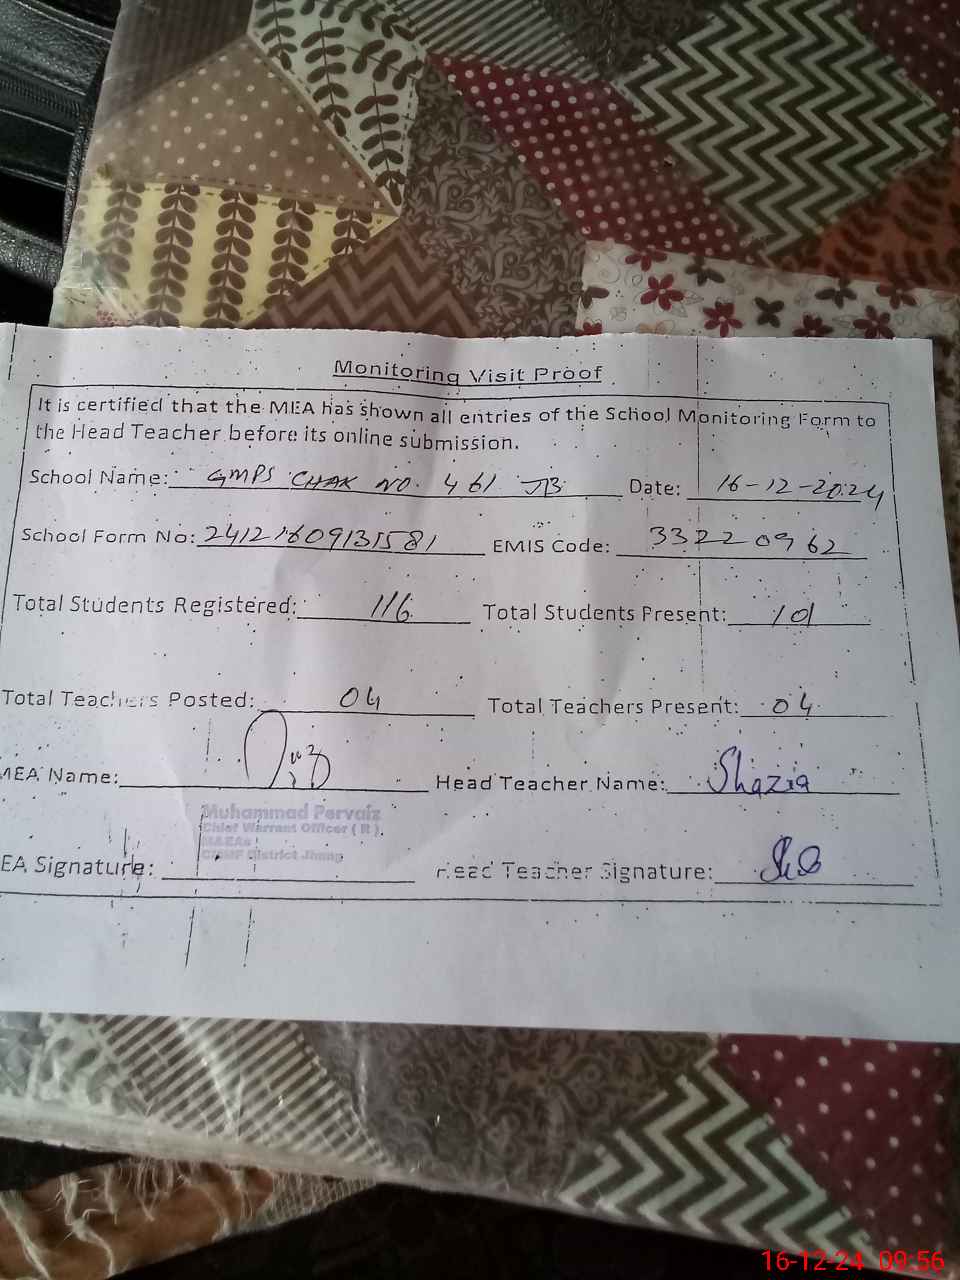 Monitoring Visit Proof
It is certified that the MEA has shown all entries of the School Monitoring Form to
the Head Teacher before its online submission.
School Name: GMPS CHAK NO. 461 JB Date: 16-12-2024
School Form No: 24121609131581 EMIS Code: 33220962
Total Students Registered: 116 Total Students Present: 101
Total Teachers Posted: 04 Total Teachers Present: 04
MEA Name: Head Teacher Name: Shazia
Muhammad Pervaiz
Chief Warrant Officer ( R )
MAEAs
District Jhang
EA Signature: Head Teacher Signature:
16-12-24 09:56